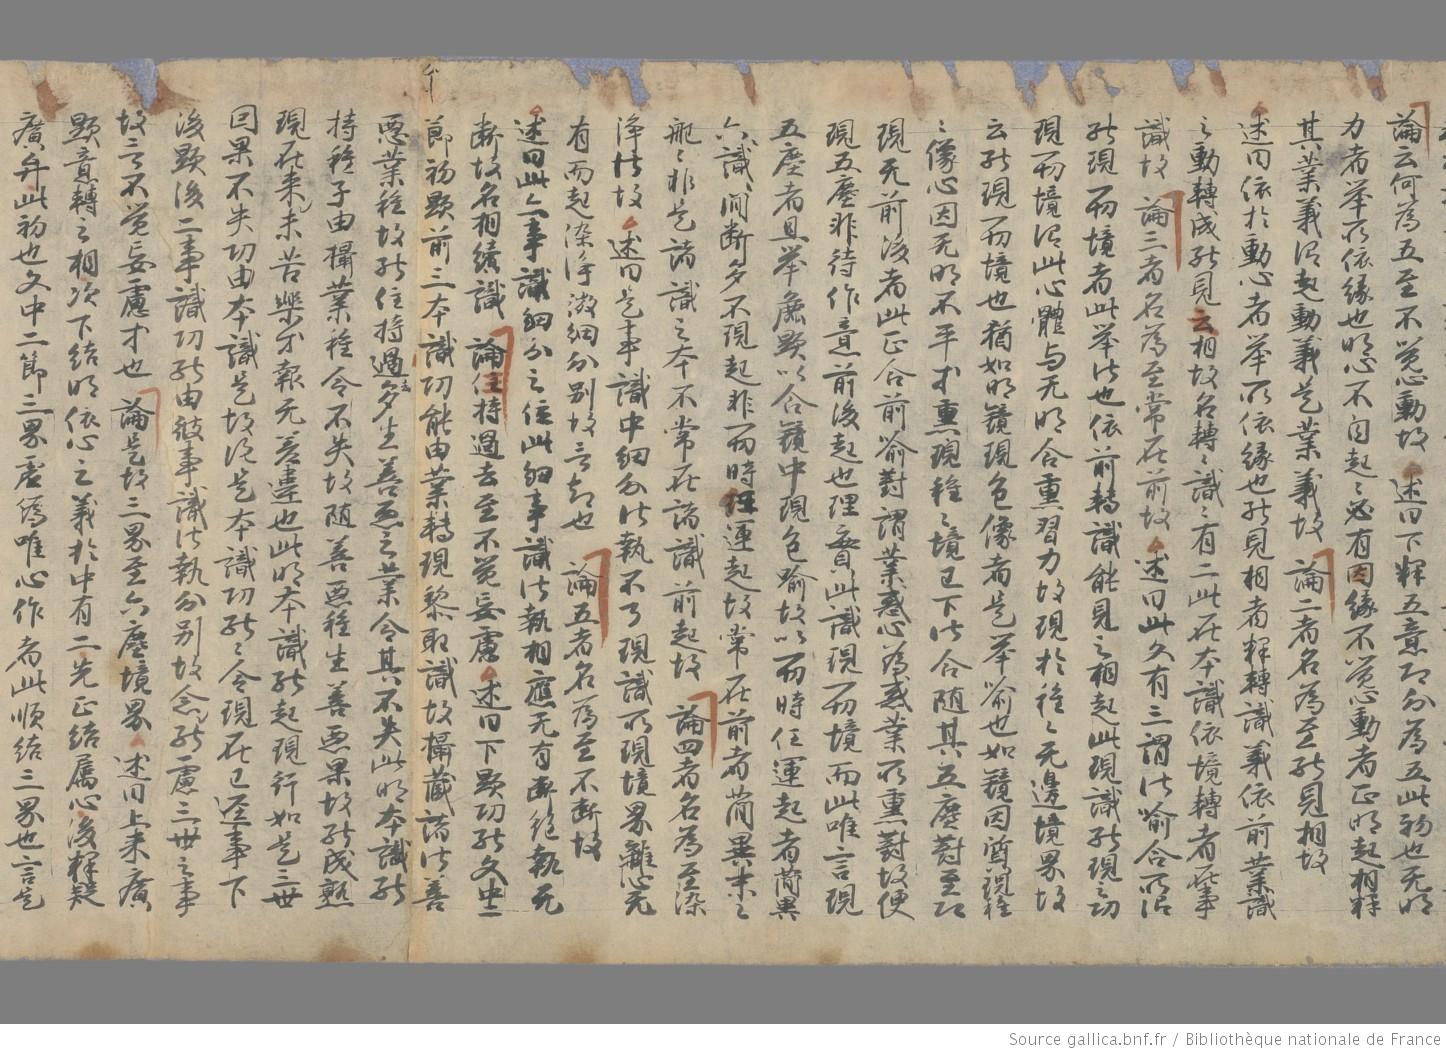 論云何為五至不覺心動故 述曰下釋五意即分為五此初也无明
力者舉所依緣也明心不自起起必有因緣不覺心動者正明起相釋
其業義須起動義是業義故 論二者名為至能見相故
述曰依於動心者舉所依緣也能見相者釋轉識義依前業識
之動轉成能見云相故名轉轉識識有二此在本識依境轉者在事
識故 論三者名為至常在前故 述曰此文有三謂法喻合所謂
能現一切境者此舉法也依前轉識能見之相起此現識能現一切
現一切境謂此心體與无明合熏習力故現於種種无邊境界故
云能現一切境也猶如明鏡現色像者是舉喻也如鏡因質現種
種像心因无明不平等熏現種種境已下法合隨其五塵對至即
現无前後者此正合前喻對謂業惑心為或業所熏對故便
現五塵非待作意前後起也理實此識現一切境而此唯言現
五塵者且舉麁顯以合鏡中現色喻故以一切時任運起者簡異
六識識間斷多不現起非一切時任運起故常在前者簡異末那
那非是諸識之本不常在諸識前起故 論四者名為至染
淨法故 述曰是事識中細分法執不了現識所現境界離心无
有而起染淨微細分別故言智也 論五者名為至不斷故
述曰此亦事識細分之位此細事識法執相應无有斷絕執无
斷故名相續識 論住持過去至不覺妄慮 述曰下顯功能文中二
節初顯前三本識功能由業轉現黎耶識故攝藏諸法善
惡業種故能住持過去多生善惡之業令其不失此明本識能
持種子由攝業種令不失故隨善惡種生善惡果故能成熟
現在未來苦樂等報无差違也此明本識能起現行如是三世
因果不失功由本識是故須是本識功能能令現在已逕事下
後顯後二事識功能由彼事識法執分別故念能慮三世之事
故言不覺妄慮等也 論是故三界至六塵境界 述曰上來廣
顯意轉之相次下結明依心之義於中有二先正結屬心後釋疑
廣弁此初也文中二節三界虛偽唯心作者此順結三界也言是
Source gallica.bnf.fr / Bibliothèque nationale de France